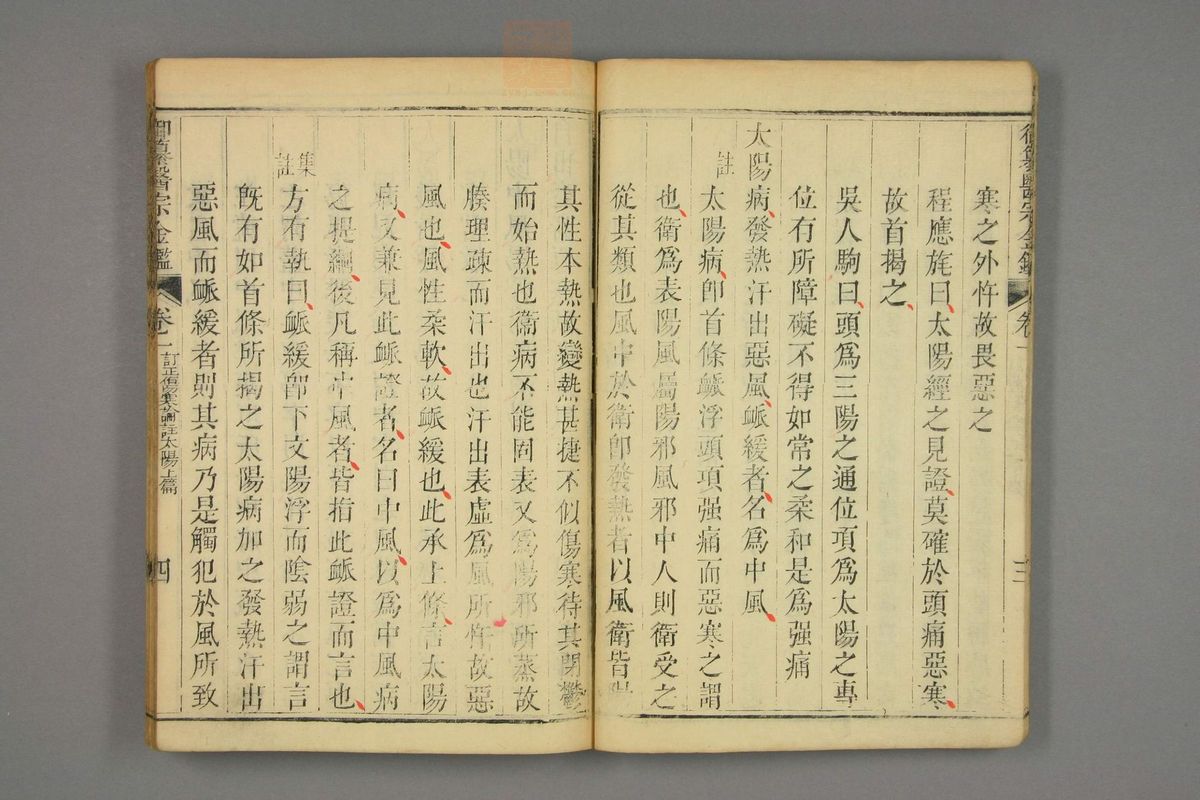 寒之外忤故畏惡之
程應旄曰太陽經之見證莫確於頭痛惡寒
故首揭之
吳人駒曰頭爲三陽之通位項爲太陽之專
位有所障礙不得如常之柔和是爲强痛
太陽病發熱汗出惡風脈緩者名爲中風
註
太陽病卽首條脈浮頭項强痛而惡寒之謂
也衛爲表陽風屬陽邪風邪中人則衛受之
從其類也風中於衛卽發熱者以風衛皆陽
其性本熱故變熱甚捷不似傷寒待其閉鬱
而始熱也衛病不能固表又爲陽邪所蒸故
腠理疎而汗出也汗出表虛爲風所忤故惡
風也風性柔軟故脈緩也此承上條言太陽
病又兼見此脈證者名曰中風以爲中風病
之提綱後凡稱中風者皆指此脈證而言也
集註
方有執曰脈緩卽下文陽浮而陰弱之謂言
旣有如首條所揭之太陽病加之發熱汗出
惡風而脈緩者則其病乃是觸犯於風所致
御纂醫宗金鑑
卷一
訂正傷寒論註太陽上篇
四